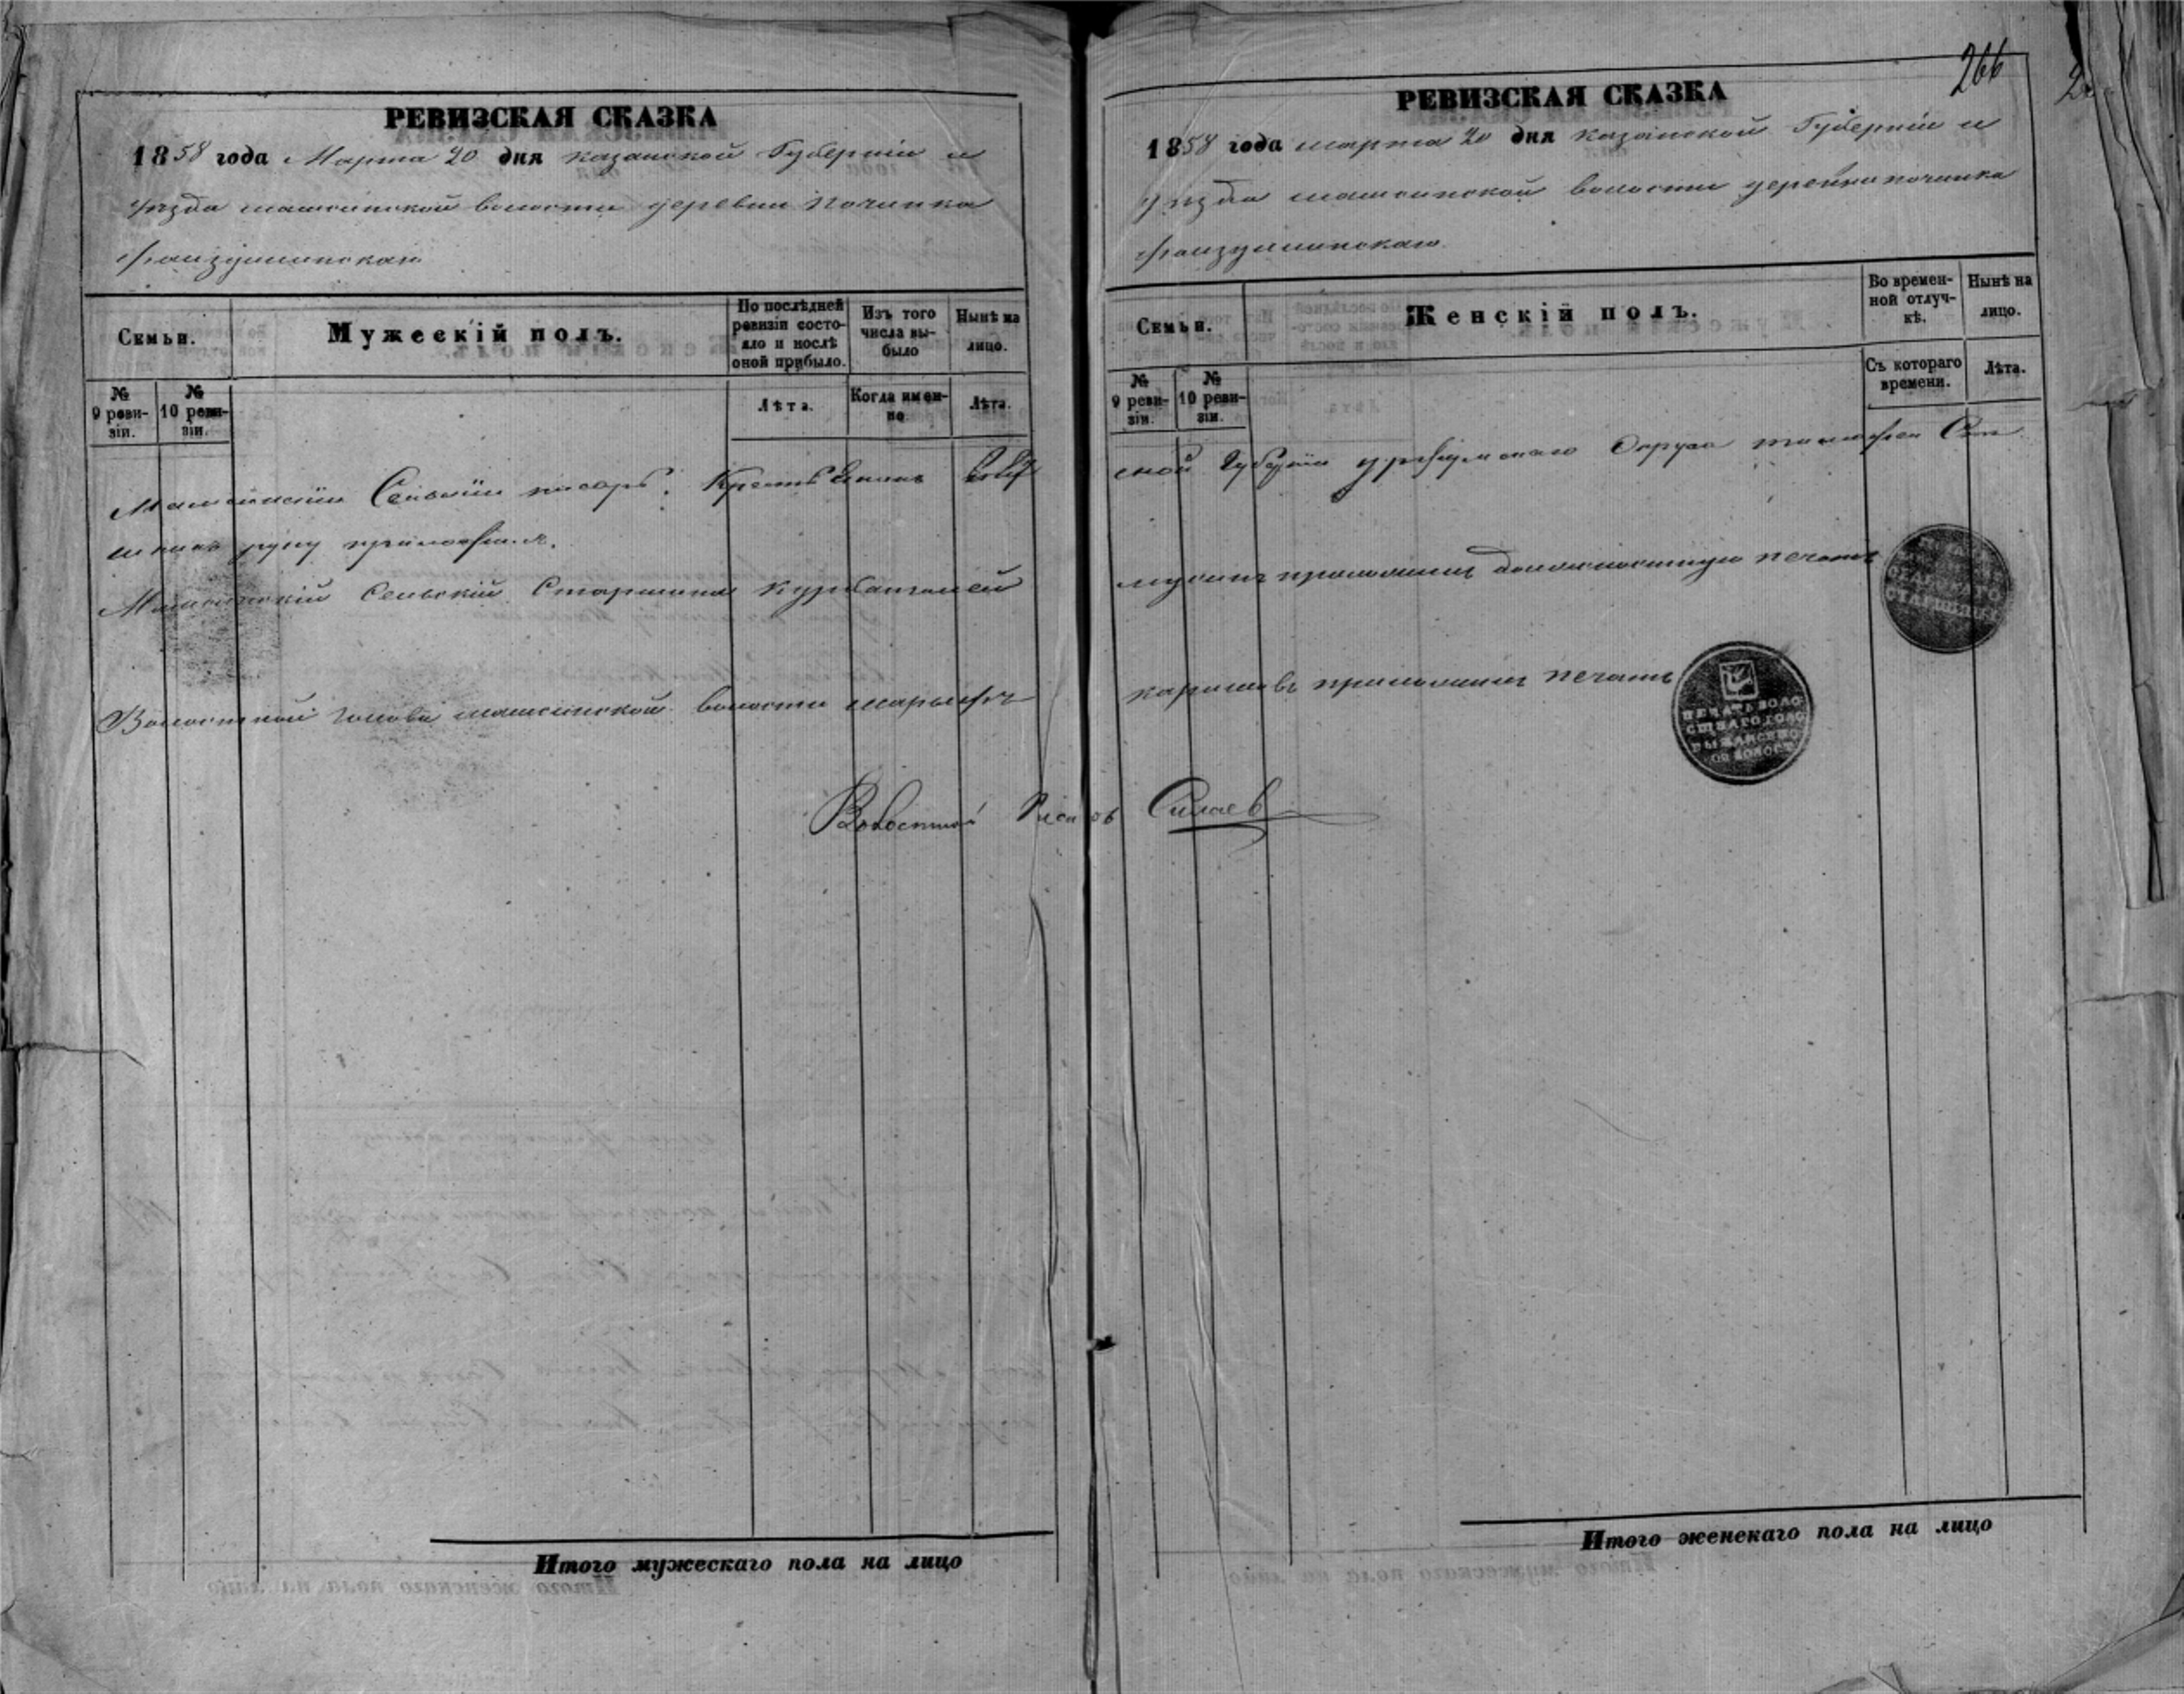 266
РЕВИЗСКАЯ СКАЗКА
1858 года Марта 20 дня казанской Губерніи и
уѣзда мамсинской волости деревни Починка
Семьи.
Мужескій полъ.
По послѣдней ревизіи состояло и послѣ оной прибыло.
Изъ того числа выбыло
Нынѣ на лицо.
№ 9 ревизіи.
№ 10 ревизіи.
Лѣта.
Когда именно
Лѣта.
Сельскій писарь. Крестьянинъ
руку приложилъ.
Мамсинскій Сельскій Старшина Курбангалей
Волостной голова мамсинской волости
Волостной Писарь
Итого мужескаго пола на лицо
РЕВИЗСКАЯ СКАЗКА
1858 года марта 20 дня казанской Губерніи и
уѣзда мамсинской волости деревни починка
Семьи.
Женскій полъ.
Во временной отлучкѣ.
Нынѣ на лицо.
№ 9 ревизіи.
№ 10 ревизіи.
Съ котораго времени.
Лѣта.
ской Губерніи уржумскаго Округа
мусинъ приложилъ должностную печать
СТАРШИНЫ
каримовъ приложилъ печать
ПЕЧАТЬ ВОЛО
СТНАГО ГОЛО
ВЫ МАМСИНСКО
ОЙ ВОЛОСТИ
Силаев
Итого женскаго пола на лицо